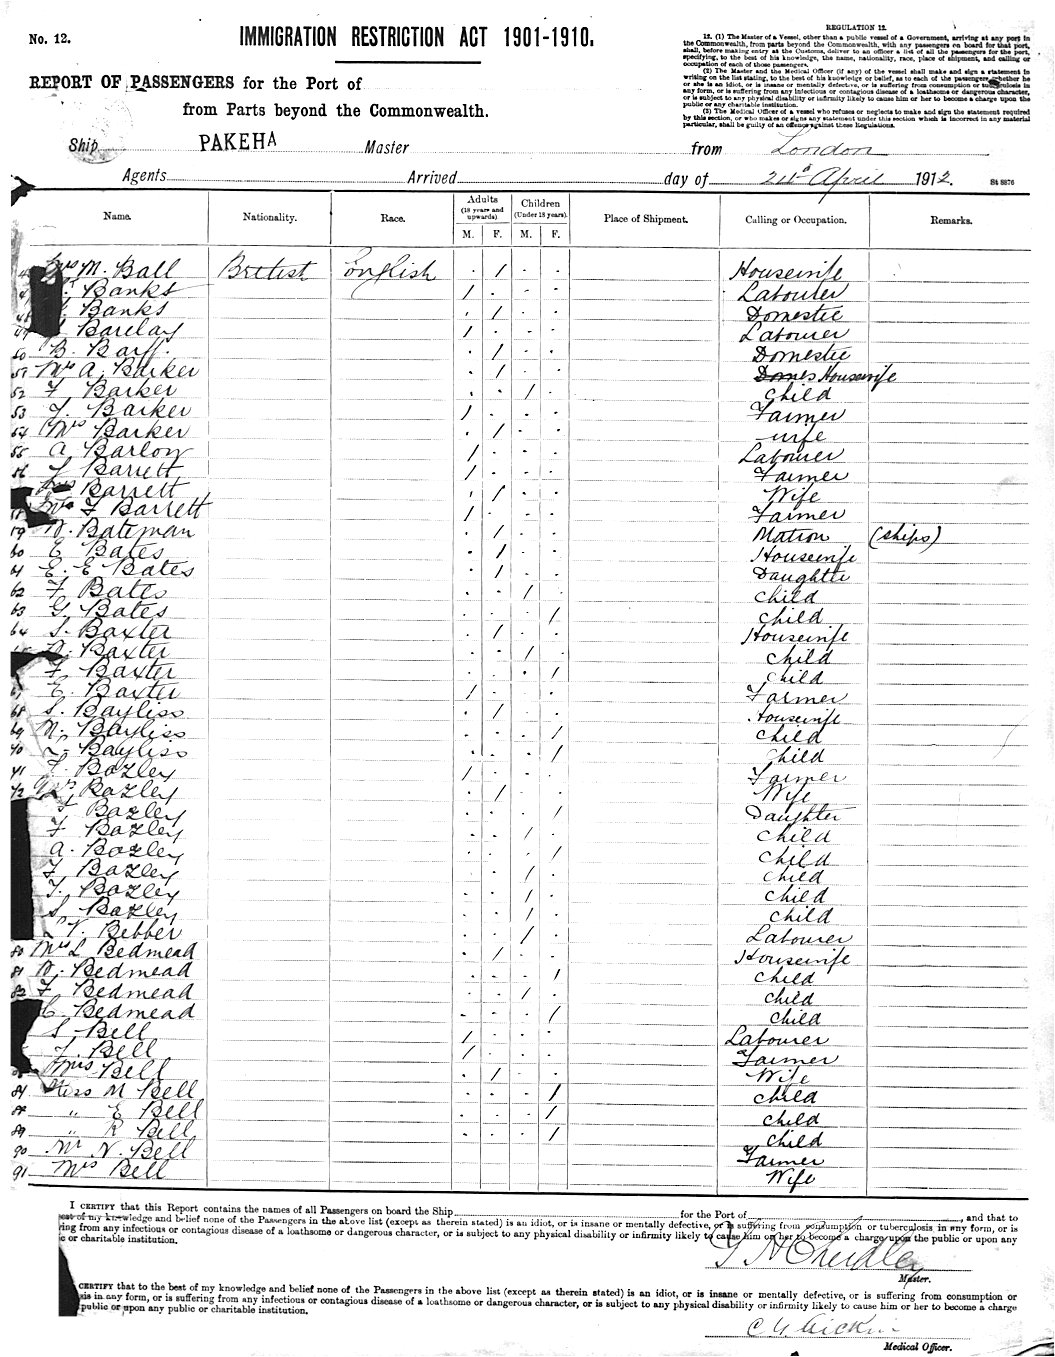 No. 12.
IMMIGRATION RESTRICTION ACT 1901-1910.
REGULATION 12.
12. (1) The Master of a Vessel, other than a public vessel of a Government, arriving at any port in
the Commonwealth, from parts beyond the Commonwealth, with any passengers on board for that port,
shall, before making entry at the Customs, deliver to an officer a list of all the passengers for the port,
specifying, to the best of his knowledge, the name, nationality, race, place of shipment, and calling or
occupation of each of those passengers.
(2) The Master and the Medical Officer (if any) of the vessel shall make and sign a statement in
writing on the list stating, to the best of his knowledge or belief, as to each of the passengers whether he
or she is an idiot, or is insane or mentally defective, or is suffering from consumption or tuberculosis in
any form, or is suffering from any infectious or contagious disease of a loathsome or dangerous character,
or is subject to any physical disability or infirmity likely to cause him or her to become a charge upon the
public or any charitable institution.
(3) The Medical Officer of a vessel who refuses or neglects to make and sign the statement required
by this section, or who makes or signs any statement under this section which is incorrect in any material
particular, shall be guilty of an offence against these Regulations.
REPORT OF PASSENGERS for the Port of
from Parts beyond the Commonwealth.
Ship PAKEHA Master from London
Agents Arrived day of 24th April 1912.
St 8876
Name. Nationality. Race. Adults (18 years and upwards). Children (Under 18 years). Place of Shipment. Calling or Occupation. Remarks.
M. F. M. F.
Mrs M. Ball British English / Housewife
Banks / Labourer
48 Banks / Domestic
49 Barclay / Labourer
50 B. Barff / Domestic
51 Mrs A. Barker / Domes Housewife
52 F Barker / Child
53 F. Barker / Farmer
54 Mrs Barker / wife
55 A. Barlow / Labourer
56 F Barrett / Farmer
Mrs Barrett / Wife
58 F Barrett / Farmer
59 N. Bateman / Matron (ships)
60 E Bates / Housewife
61 E. E Bates / Daughter
62 F. Bates / Child
63 G. Bates / Child
64 S. Baxter / Housewife
Baxter / Child
F. Baxter / Child
67 E. Baxter / Farmer
68 S. Bayliss / Housewife
69 M. Bayliss / Child
70 L. Bayliss / Child
71 F. Bazley / Farmer
72 Mrs Bazley / Wife
Bazley / Daughter
F Bazley / Child
A. Bazley / Child
F. Bazley / Child
T. Bazley / Child
S. Bazley / Child
T. Bebber / Labourer
80 Mrs L Bedmead / Housewife
81 N. Bedmead / Child
82 F. Bedmead / Child
C. Bedmead / Child
S. Bell / Labourer
F. Bell / Farmer
Mrs Bell / Wife
87 Miss M Bell / Child
88 " E Bell / Child
89 " R Bell / Child
90 Mr N. Bell Farmer
91 Mrs Bell Wife
I CERTIFY that this Report contains the names of all Passengers on board the Ship for the Port of , and that to
best of my knowledge and belief none of the Passengers in the above list (except as therein stated) is an idiot, or is insane or mentally defective, or is suffering from consumption or tuberculosis in any form, or is
ring from any infectious or contagious disease of a loathsome or dangerous character, or is subject to any physical disability or infirmity likely to cause him or her to become a charge upon the public or upon any
c or charitable institution.
Master.
CERTIFY that to the best of my knowledge and belief none of the Passengers in the above list (except as therein stated) is an idiot, or is insane or mentally defective, or is suffering from consumption or
sis in any form, or is suffering from any infectious or contagious disease of a loathsome or dangerous character, or is subject to any physical disability or infirmity likely to cause him or her to become a charge
public or upon any public or charitable institution.
Medical Officer.